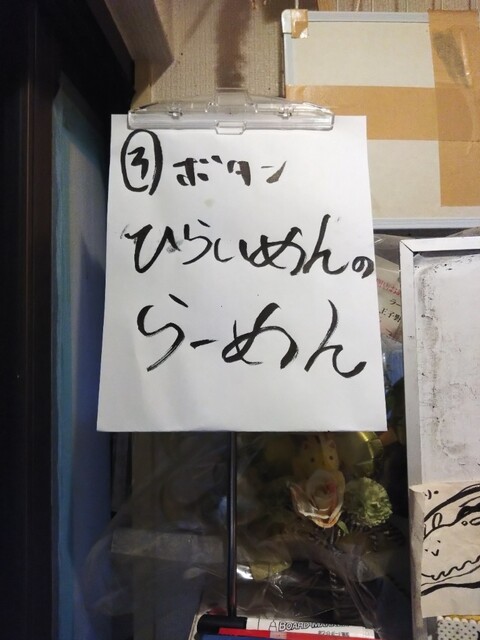 ③ボタン
ひらいめんの
らーめん
BOARD MA